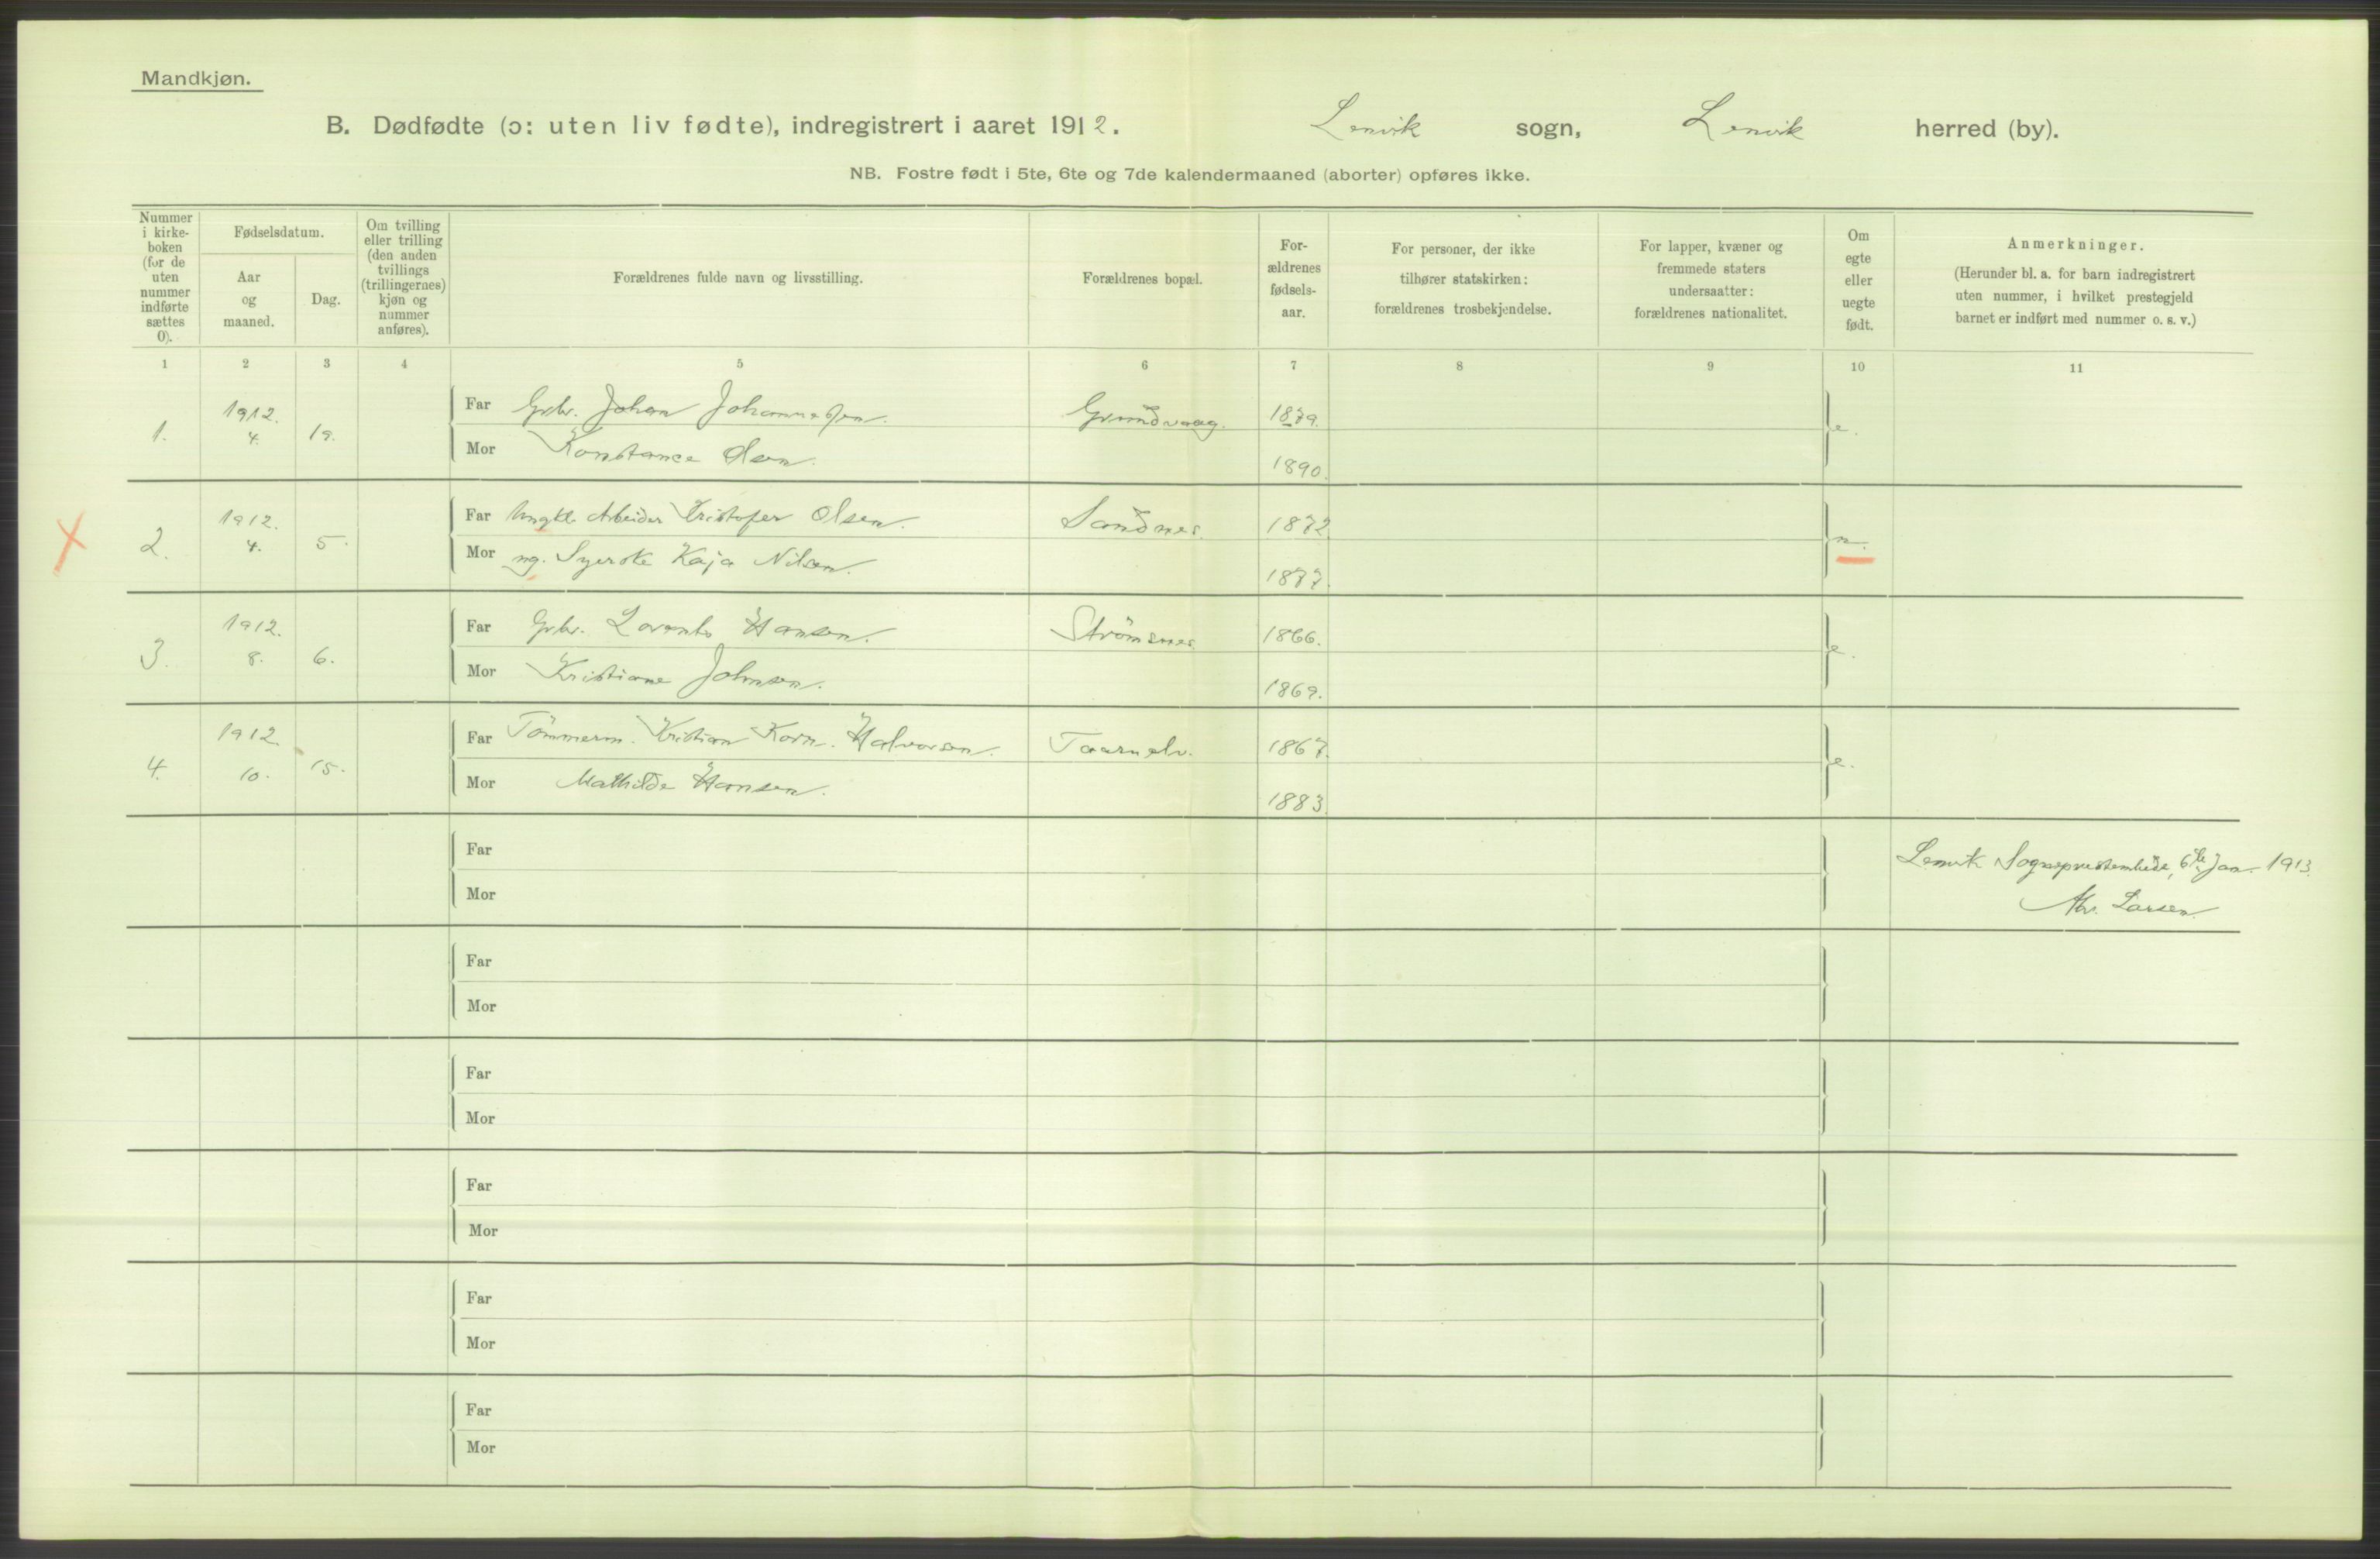 Mandkjøn.
B. Dødfødte (ɔ: uten liv fødte), indregistrert i aaret 1912. Lenvik sogn, Lenvik herred (by).
NB. Fostre født i 5te, 6te og 7de kalendermaaned (aborter) opføres ikke.
Nummer
i kirke-
boken
(for de
uten
nummer
indførte
sættes
0).
Fødselsdatum.
Aar
og
maaned.
Dag.
Om tvilling
eller trilling
(den anden
tvillings
(trillingernes)
kjøn og
nummer
anføres).
Forældrenes fulde navn og livsstilling.
Forældrenes bopæl.
For-
ældrenes
fødsels-
aar.
For personer, der ikke
tilhører statskirken:
forældrenes trosbekjendelse.
For lapper, kvæner og
fremmede staters
undersaatter:
forældrenes nationalitet.
Om
egte
eller
uegte
født.
Anmerkninger.
(Herunder bl. a. for barn indregistrert
uten nummer, i hvilket prestegjeld
barnet er indført med nummer o. s. v.)
1 2 3 4 5 6 7 8 9 10 11
1. 1912. 4. 19. Far Gbr. Johan Johannessen. Grundvaag. 1879. e.
Mor Konstance Olsen. 1890.
2. 1912. 4. 5. Far Ungkl. Arbeider Kristofer Olsen. Sandnes. 1872.
Mor ug. Syerske Kaja Nilsen. 1877.
3. 1912. 8. 6. Far Gbr. Lorents Hansen. Strömsnes 1866. e.
Mor Kristiane Johnsen. 1869.
4. 1912. 10. 15. Far Tömmerm. Kristian Korn. Halvorsen. Taarnelv. 1867. e.
Mor Mathilde Hansen. 1883.
Far
Mor
Lenvik Sogneprestembede, 6te Jan. 1913.
Larsen.
Far
Mor
Far
Mor
Far
Mor
Far
Mor
Far
Mor